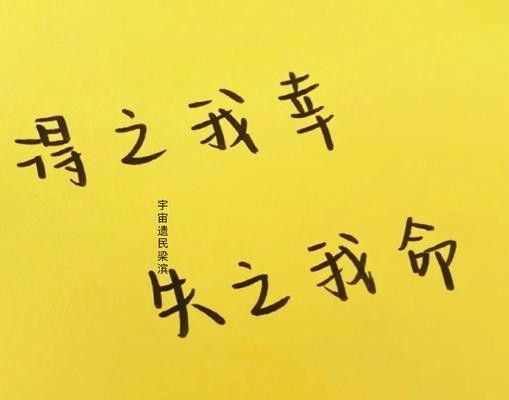 得之我幸
宇宙遗民梁滨
失之我命